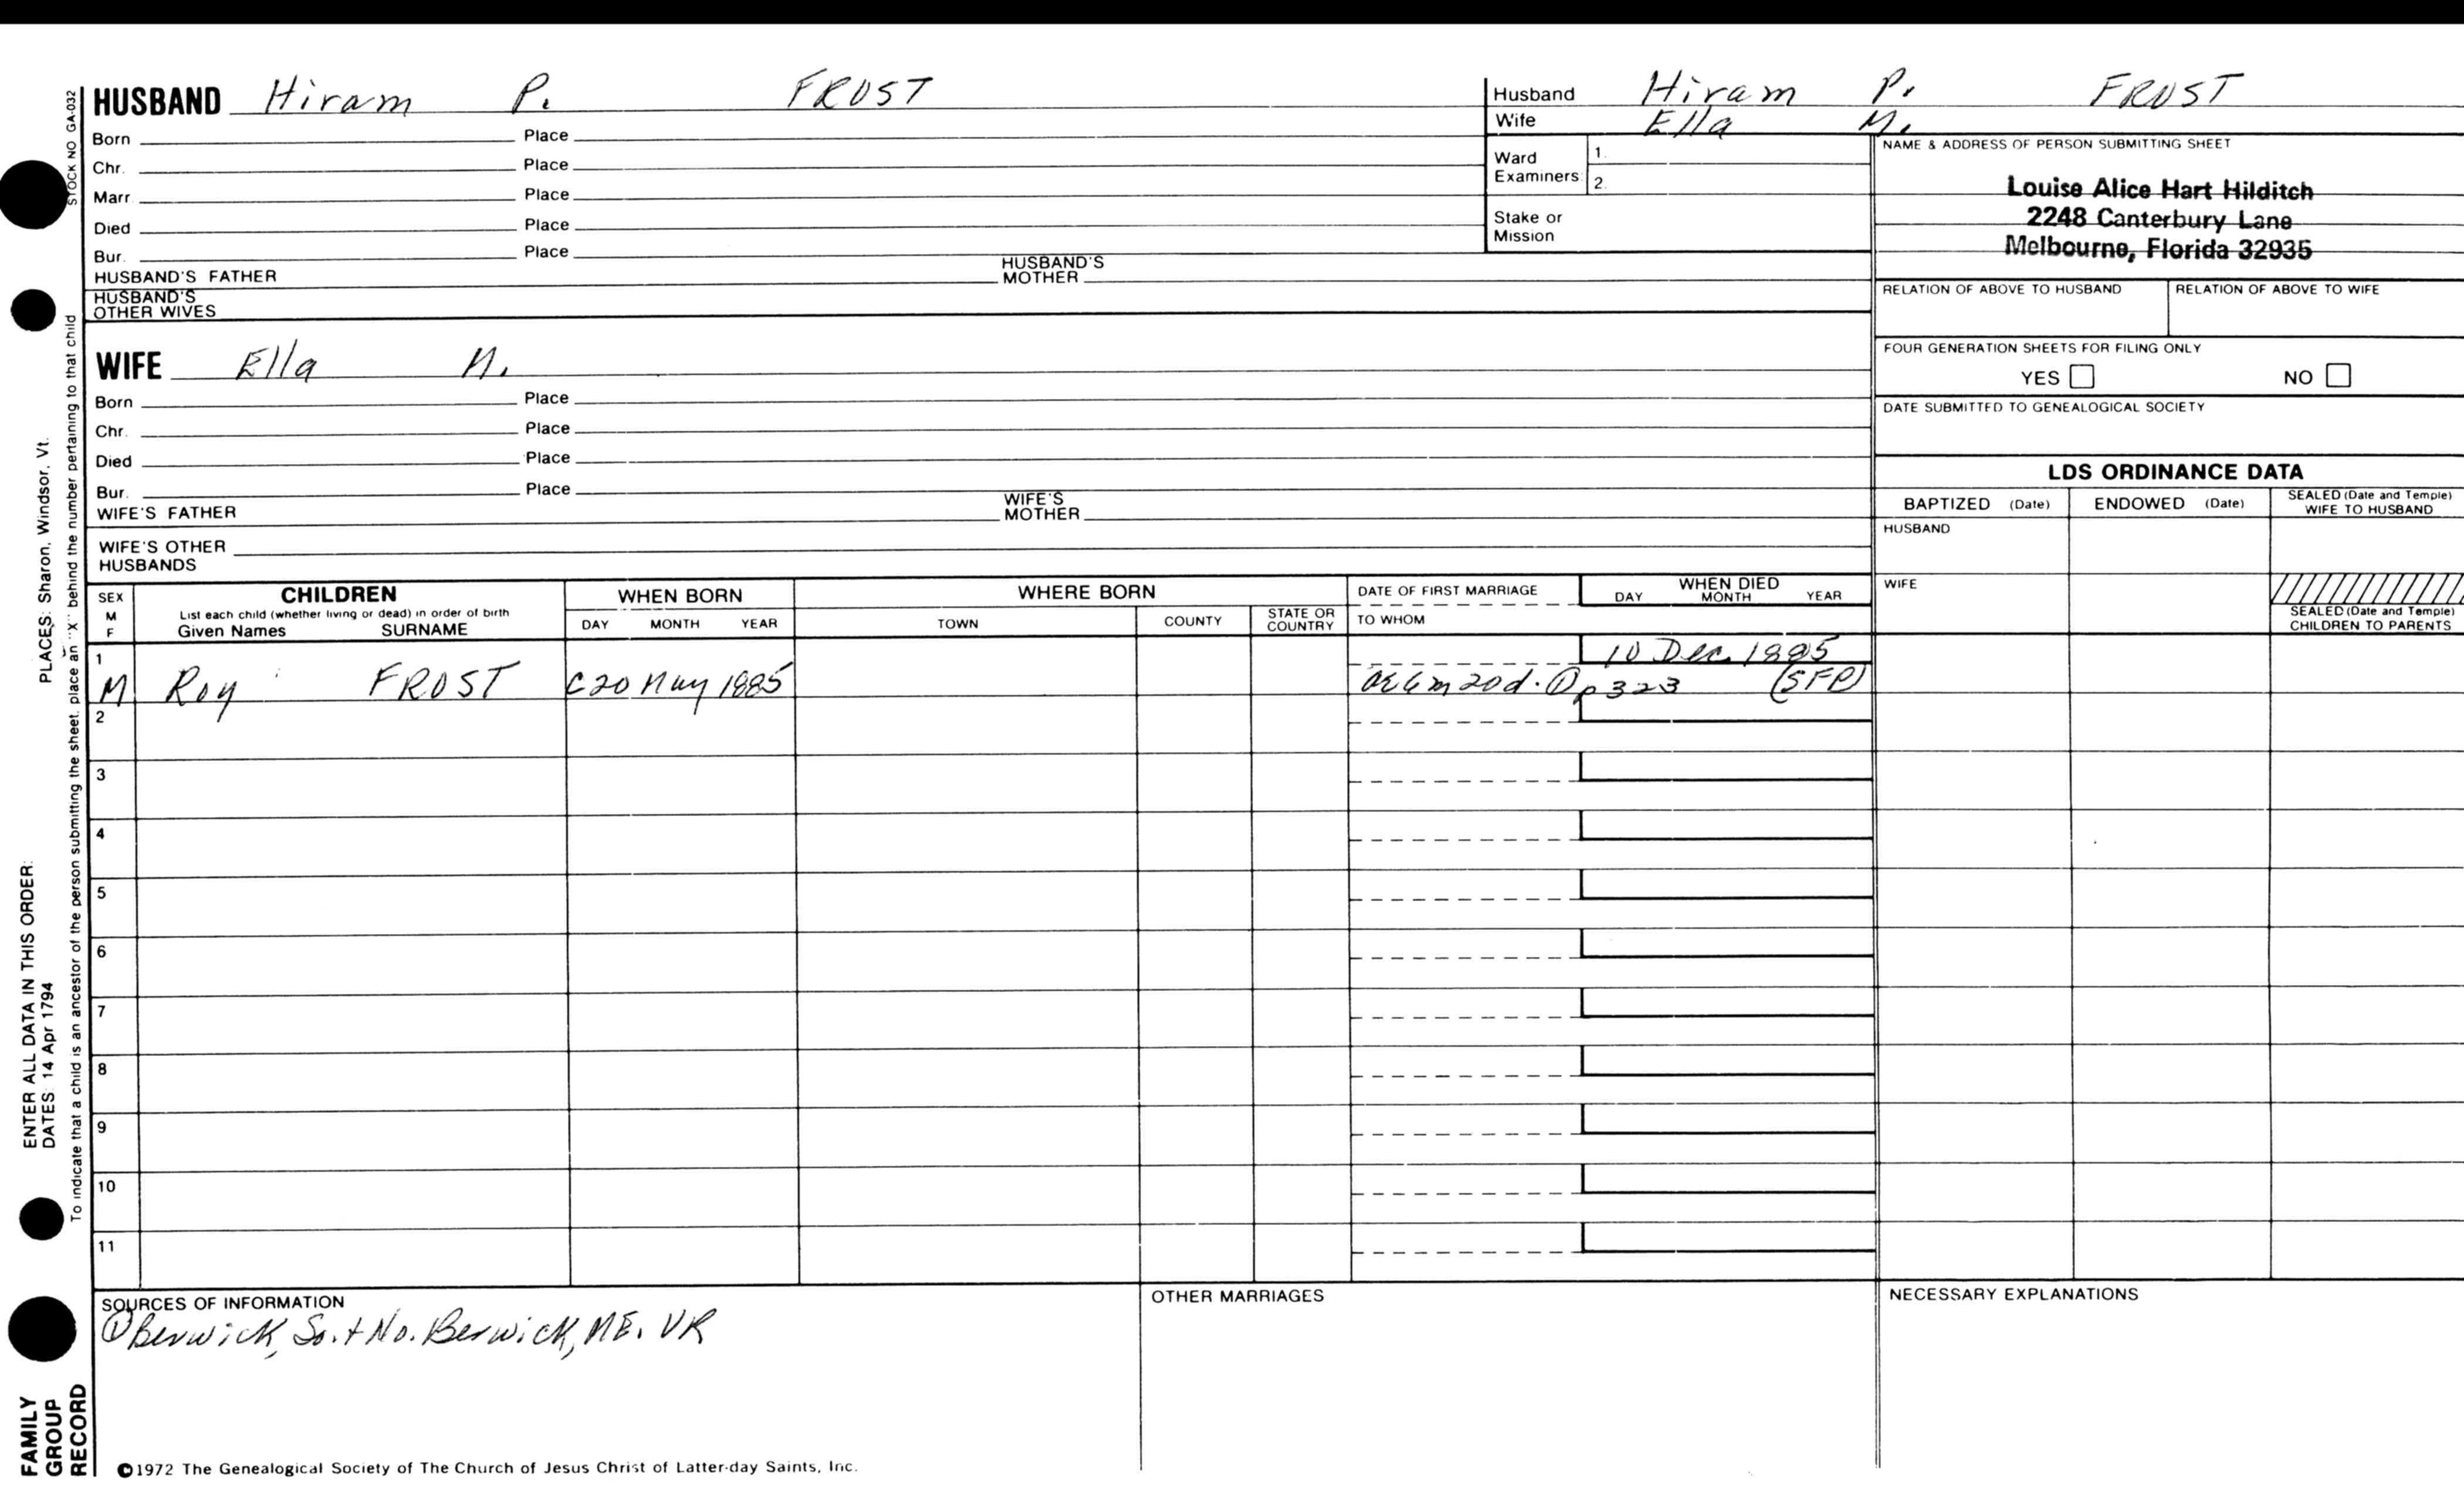 HUSBAND Hiram P. FROST
Born Place
Chr. Place
Marr. Place
Died Place
Bur. Place
HUSBAND'S FATHER HUSBAND'S MOTHER
HUSBAND'S OTHER WIVES
Husband Hiram P. FROST
Wife Ella M.
Ward Examiners 1.
2.
Stake or Mission
NAME & ADDRESS OF PERSON SUBMITTING SHEET
Louise Alice Hart Hilditch
2248 Canterbury Lane
Melbourne, Florida 32935
RELATION OF ABOVE TO HUSBAND RELATION OF ABOVE TO WIFE
FOUR GENERATION SHEETS FOR FILING ONLY
YES NO
DATE SUBMITTED TO GENEALOGICAL SOCIETY
WIFE Ella M.
Born Place
Chr. Place
Died Place
Bur. Place
WIFE'S FATHER WIFE'S MOTHER
WIFE'S OTHER HUSBANDS
LDS ORDINANCE DATA
BAPTIZED (Date) ENDOWED (Date) SEALED (Date and Temple) WIFE TO HUSBAND
HUSBAND
WIFE
SEALED (Date and Temple) CHILDREN TO PARENTS
SEX M F
CHILDREN
List each child (whether living or dead) in order of birth
Given Names SURNAME
WHEN BORN
DAY MONTH YEAR
WHERE BORN
TOWN COUNTY STATE OR COUNTRY
DATE OF FIRST MARRIAGE
TO WHOM
WHEN DIED
DAY MONTH YEAR
1 10 Dec. 1885
M Roy FROST C20 May 1885 ae 6m 20d. ① p323 (SFP)
2
3
4
5
6
7
8
9
10
11
SOURCES OF INFORMATION
① Berwick, So. + No. Berwick, ME. VR
OTHER MARRIAGES
NECESSARY EXPLANATIONS
©1972 The Genealogical Society of The Church of Jesus Christ of Latter-day Saints, Inc.
STOCK NO GA-032
To indicate that a child is an ancestor of the person submitting the sheet, place an "X" behind the number pertaining to that child
ENTER ALL DATA IN THIS ORDER:
DATES: 14 Apr 1794 PLACES: Sharon, Windsor, Vt.
FAMILY
GROUP
RECORD